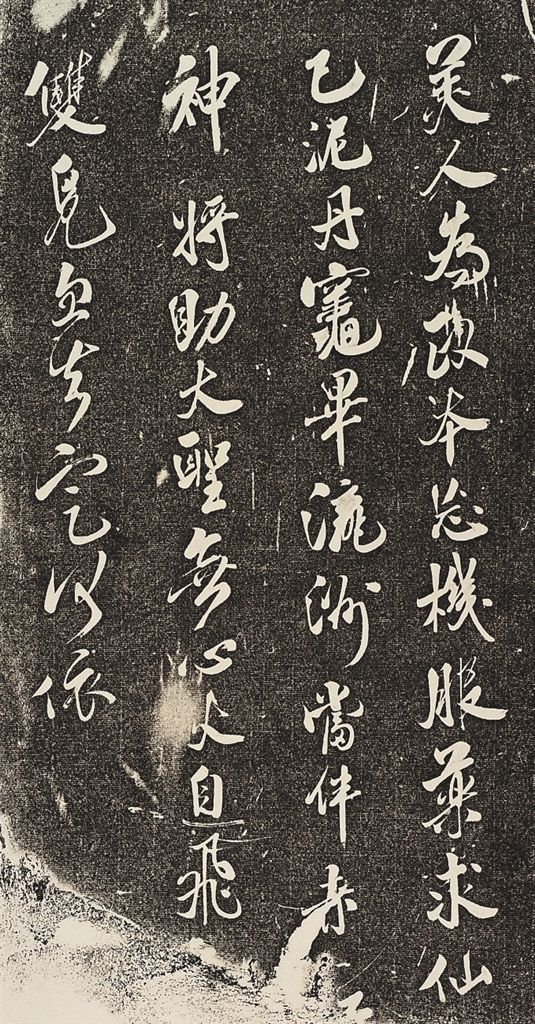 美人為政本忘機服藥求仙
已泥丹竈畢瀛洲當伴赤
神將助大聖無心火自飛
雙鳧忽去定何依